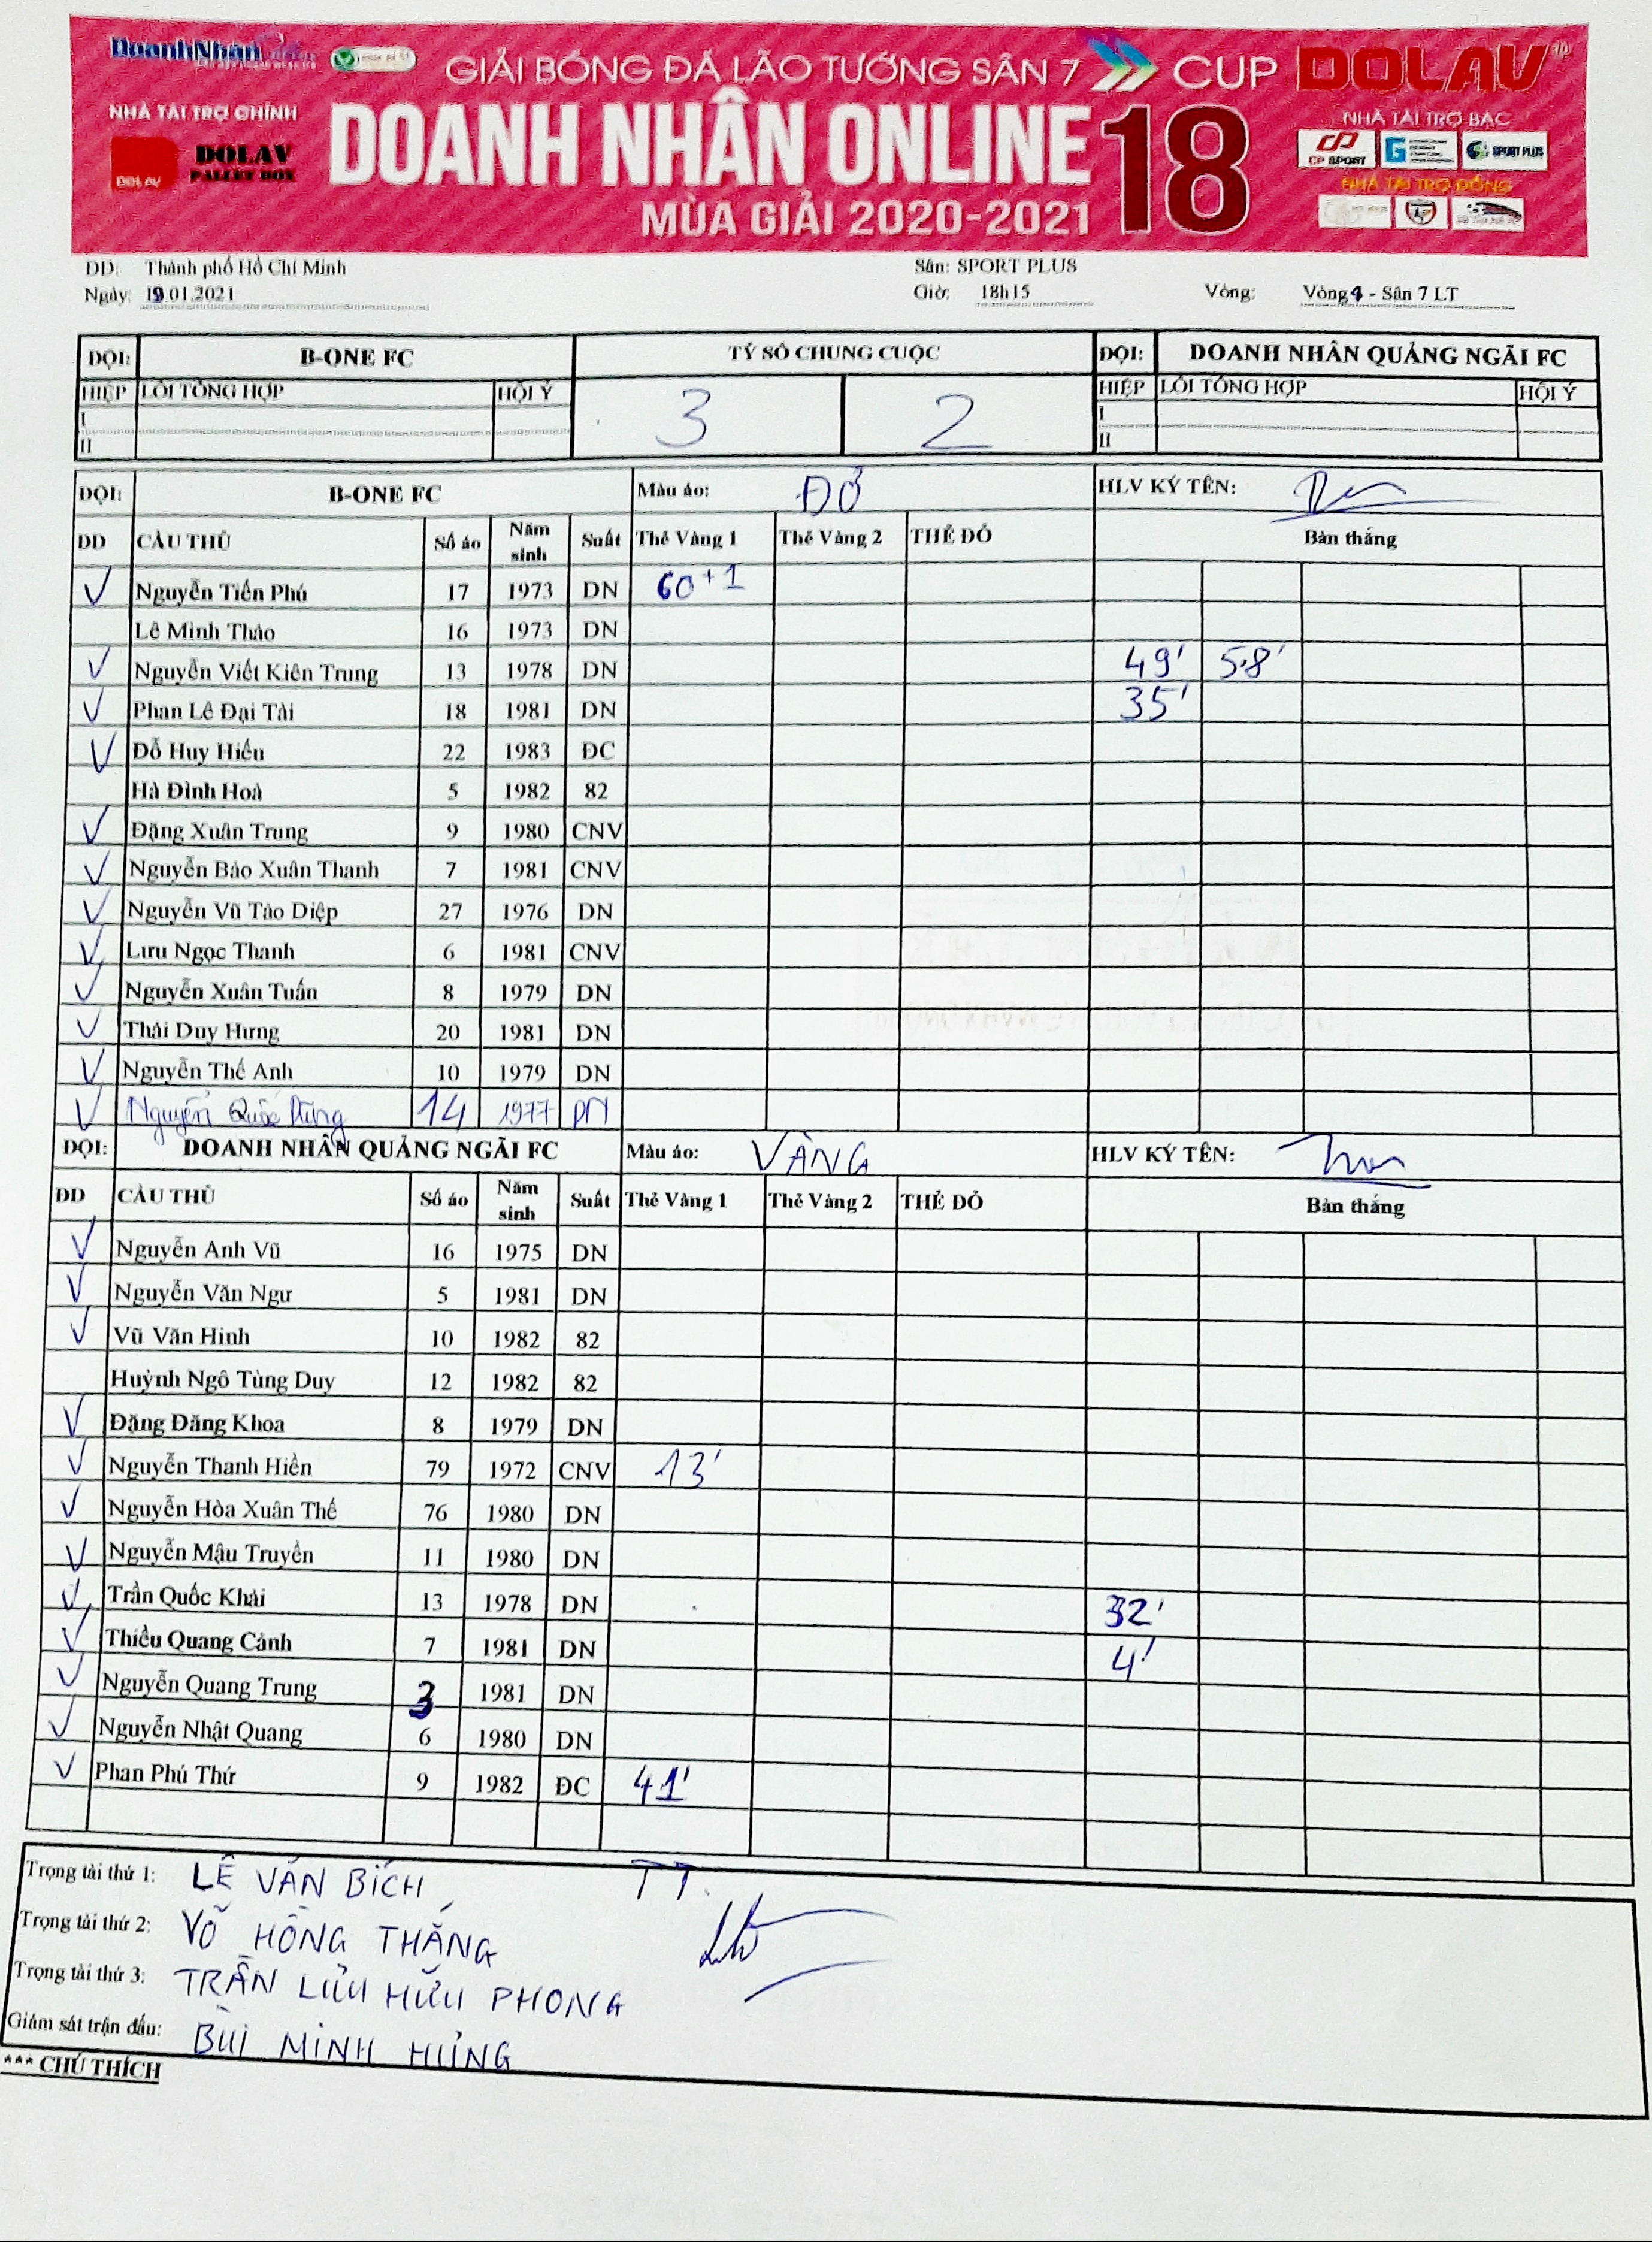 DoanhNhân
GIẢI BÓNG ĐÁ LÃO TƯỚNG SÂN 7 CUP DOLAV
NHÀ TÀI TRỢ CHÍNH
DOLAV
DOLAV
PALLET BOX
DOANH NHÂN ONLINE 18
MÙA GIẢI 2020-2021
NHÀ TÀI TRỢ BẠC
CP SPORT
SPORT PLUS
NHÀ TÀI TRỢ ĐỒNG
DD: Thành phố Hồ Chí Minh Sân: SPORT PLUS
Ngày: 19.01.2021 Giờ: 18h15 Vòng: Vòng 4 - Sân 7 LT
ĐỘI: B-ONE FC TỶ SỐ CHUNG CUỘC ĐỘI: DOANH NHÂN QUẢNG NGÃI FC
HIỆP LỖI TỔNG HỢP HỘI Ý 3 2 HIỆP LỖI TỔNG HỢP HỘI Ý
I I
II II
ĐỘI: B-ONE FC Màu áo: ĐỎ HLV KÝ TÊN:
DD CẦU THỦ Số áo Năm sinh Suất Thẻ Vàng 1 Thẻ Vàng 2 THẺ ĐỎ Bàn thắng
Nguyễn Tiến Phú 17 1973 DN 60+1
Lê Minh Thảo 16 1973 DN
Nguyễn Viết Kiên Trung 13 1978 DN 49' 58'
Phan Lê Đại Tài 18 1981 DN 35'
Đỗ Huy Hiếu 22 1983 ĐC
Hà Đình Hoà 5 1982 82
Đặng Xuân Trung 9 1980 CNV
Nguyễn Bảo Xuân Thanh 7 1981 CNV
Nguyễn Vũ Tảo Diệp 27 1976 DN
Lưu Ngọc Thanh 6 1981 CNV
Nguyễn Xuân Tuấn 8 1979 DN
Thái Duy Hưng 20 1981 DN
Nguyễn Thế Anh 10 1979 DN
Nguyễn Quốc Dũng 14 1977 DN
ĐỘI: DOANH NHÂN QUẢNG NGÃI FC Màu áo: VÀNG HLV KÝ TÊN:
DD CẦU THỦ Số áo Năm sinh Suất Thẻ Vàng 1 Thẻ Vàng 2 THẺ ĐỎ Bàn thắng
Nguyễn Anh Vũ 16 1975 DN
Nguyễn Văn Ngư 5 1981 DN
Vũ Văn Hinh 10 1982 82
Huỳnh Ngô Tùng Duy 12 1982 82
Đặng Đăng Khoa 8 1979 DN
Nguyễn Thanh Hiền 79 1972 CNV 13'
Nguyễn Hòa Xuân Thế 76 1980 DN
Nguyễn Mậu Truyền 11 1980 DN
Trần Quốc Khải 13 1978 DN 32'
Thiều Quang Cảnh 7 1981 DN 4'
Nguyễn Quang Trung 3 1981 DN
Nguyễn Nhật Quang 6 1980 DN
Phan Phú Thứ 9 1982 ĐC 41'
Trọng tài thứ 1: LÊ VĂN BÍCH TT.
Trọng tài thứ 2: VÕ HỒNG THẮNG
Trọng tài thứ 3: TRẦN LƯU HỮU PHONG
Giám sát trận đấu: BÙI MINH HÙNG
*** CHÚ THÍCH